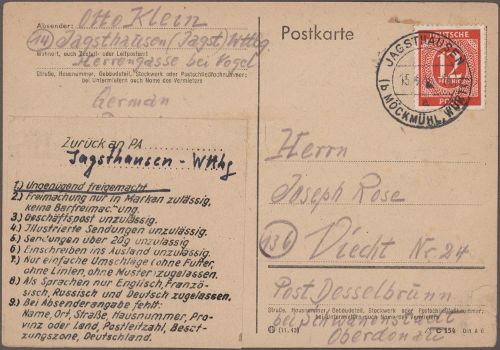 Absender: Otto Klein
(14) Jagsthausen (Jagst) Wttbg.
Wohnort, auch Zustell- oder Leitpostamt
Herrengasse bei Vogel
Straße, Hausnummer, Gebäudeteil, Stockwerk oder Postschließfachnummer;
bei Untermietern auch Name des Vermieters
German
Zurück an PA
Jagsthausen - Wttbg
1.) Ungenügend freigemacht
2.) Freimachung nur in Marken zulässig,
keine Barfreimachung.
3.) Geschäftspost unzulässig
4.) Illustrierte Sendungen unzulässig.
5.) Sendungen über 20g unzulässig
6.) Einschreiben ins Ausland unzulässig.
7.) Nur einfache Umschläge (ohne Futter,
ohne Linien, ohne Muster) zugelassen.
8.) Als Sprachen nur Englisch, Franzö-
sisch, Russisch und Deutsch zugelassen.
9.) Bei Absenderangabe fehlt:
Name, Ort, Straße, Hausnummer, Pro-
vinz oder Land, Postleitzahl, Besat-
zungszone, Deutschland.
Postkarte
DEUTSCHE
12
PFENNIG
JAGSTHAUSEN
(b MÖCKMÜHL, WÜRTT)
Herrn
Joseph Rose
(13b)
Viecht Nr. 24
Post Desselbrunn
Straße, Hausnummer, Gebäudeteil, Stockwerk oder Postschließfachnummer;
bei Untermietern auch Name des Vermieters
bei Schwanenstadt
Oberdonau
C 154 Din A 6